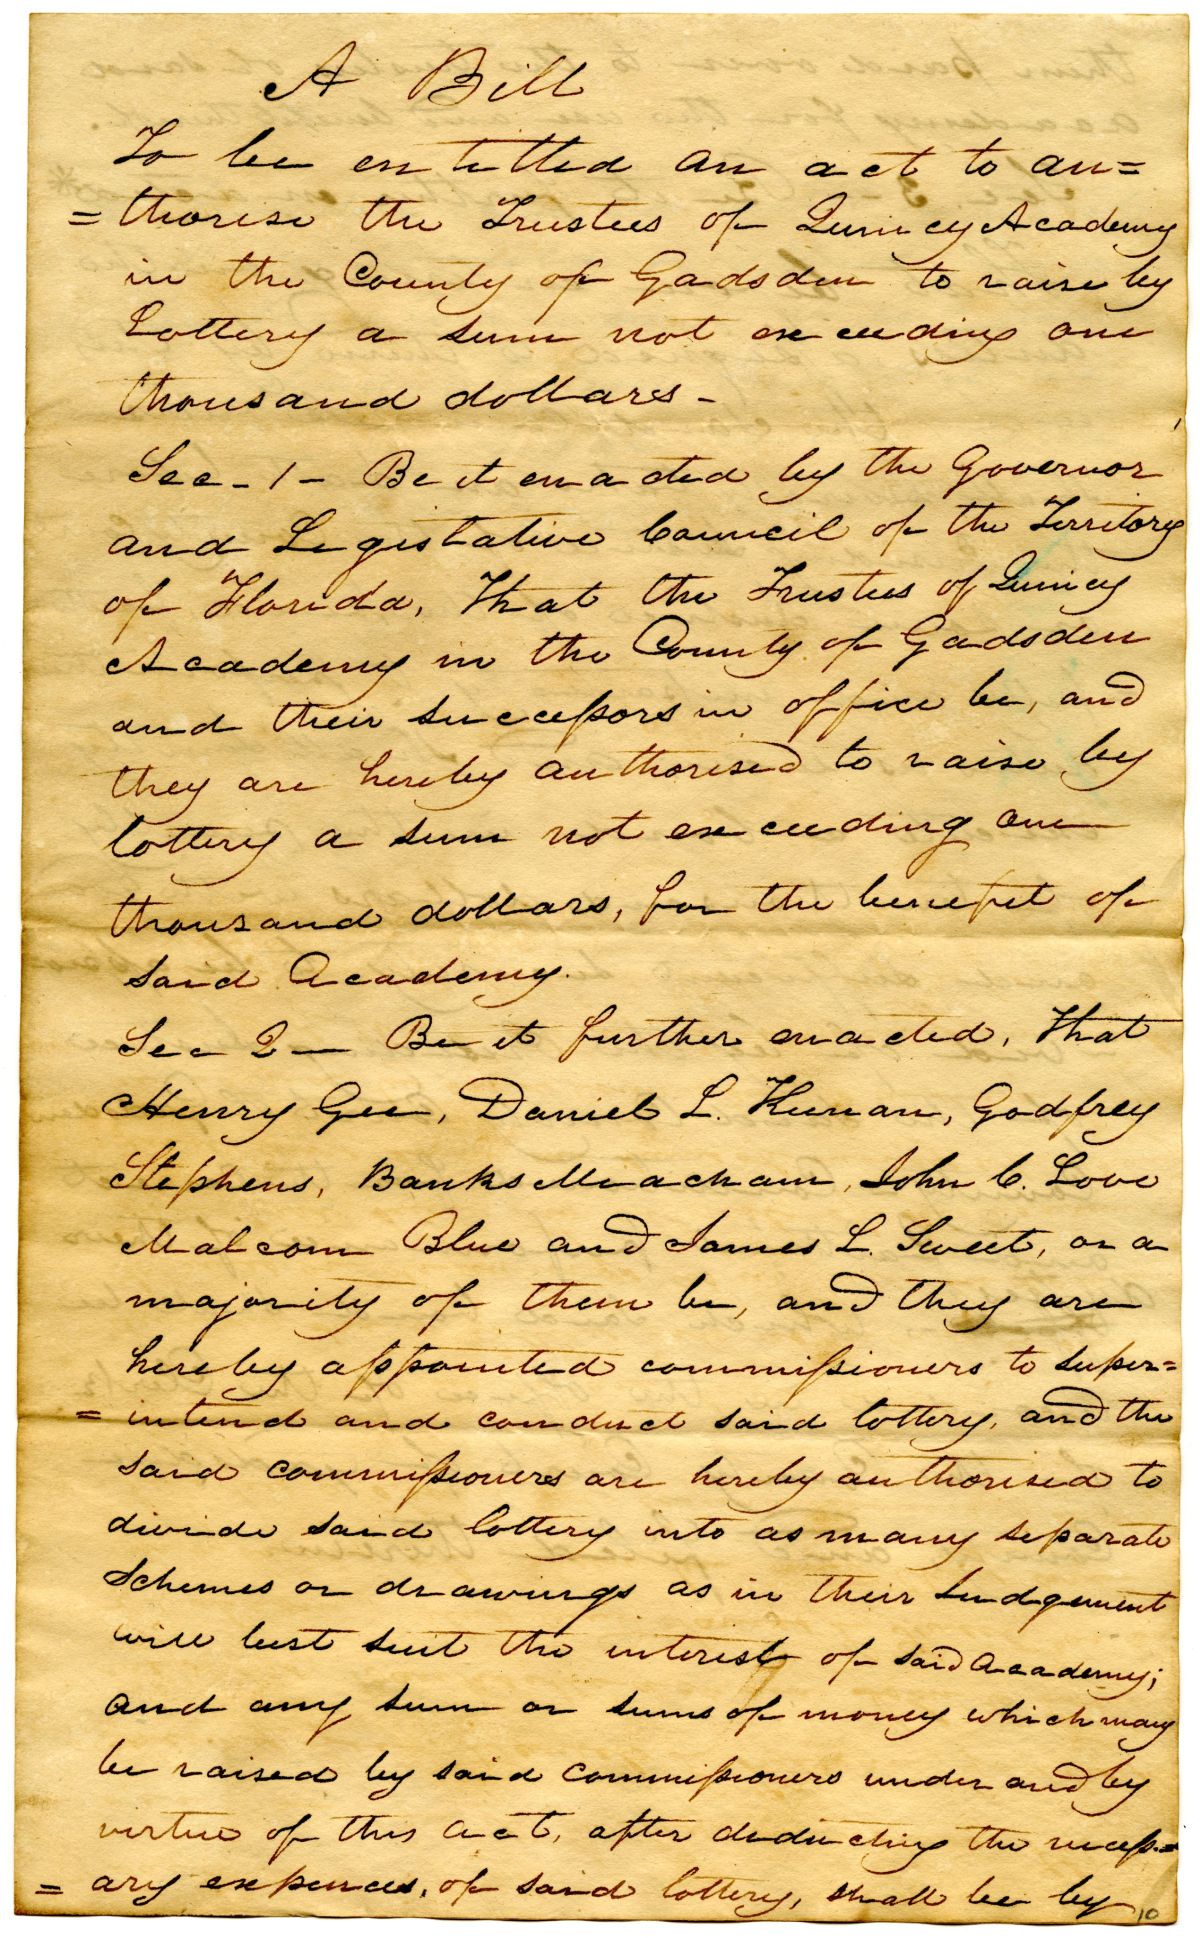 A Bill
To be entitled an act to au=
=thorise the Trustees of Quincy Academy
in the County of Gadsden to raise by
Lottery a sum not exceeding one
thousand dollars -
Sec - 1 - Be it enacted by the Governor
and Legislative Council of the Territory
of Florida, That the Trustees of Quincy
Academy in the County of Gadsden
and their successors in office be, and
they are hereby authorised to raise by
lottery a sum not exceeding one
thousand dollars, for the benefit of
said Academy.
Sec 2 — Be it further enacted, That
Henry Gee, Daniel L. Kenan, Godfrey
Stephens, Banks Meacham, John C. Love
Malcom Blue and James L. Sweet, or a
majority of them be, and they are
hereby appointed commissioners to super=
=intend and conduct said lottery, and the
said commissioners are hereby authorised to
divide said lottery into as many separate
schemes or drawings as in their Judgement
will best suit the interest of said academy;
and any sum or sums of money which may
be raised by said commissioners under and by
virtue of this act, after deducting the necess=
=ary expences, of said lottery, shall be by
10